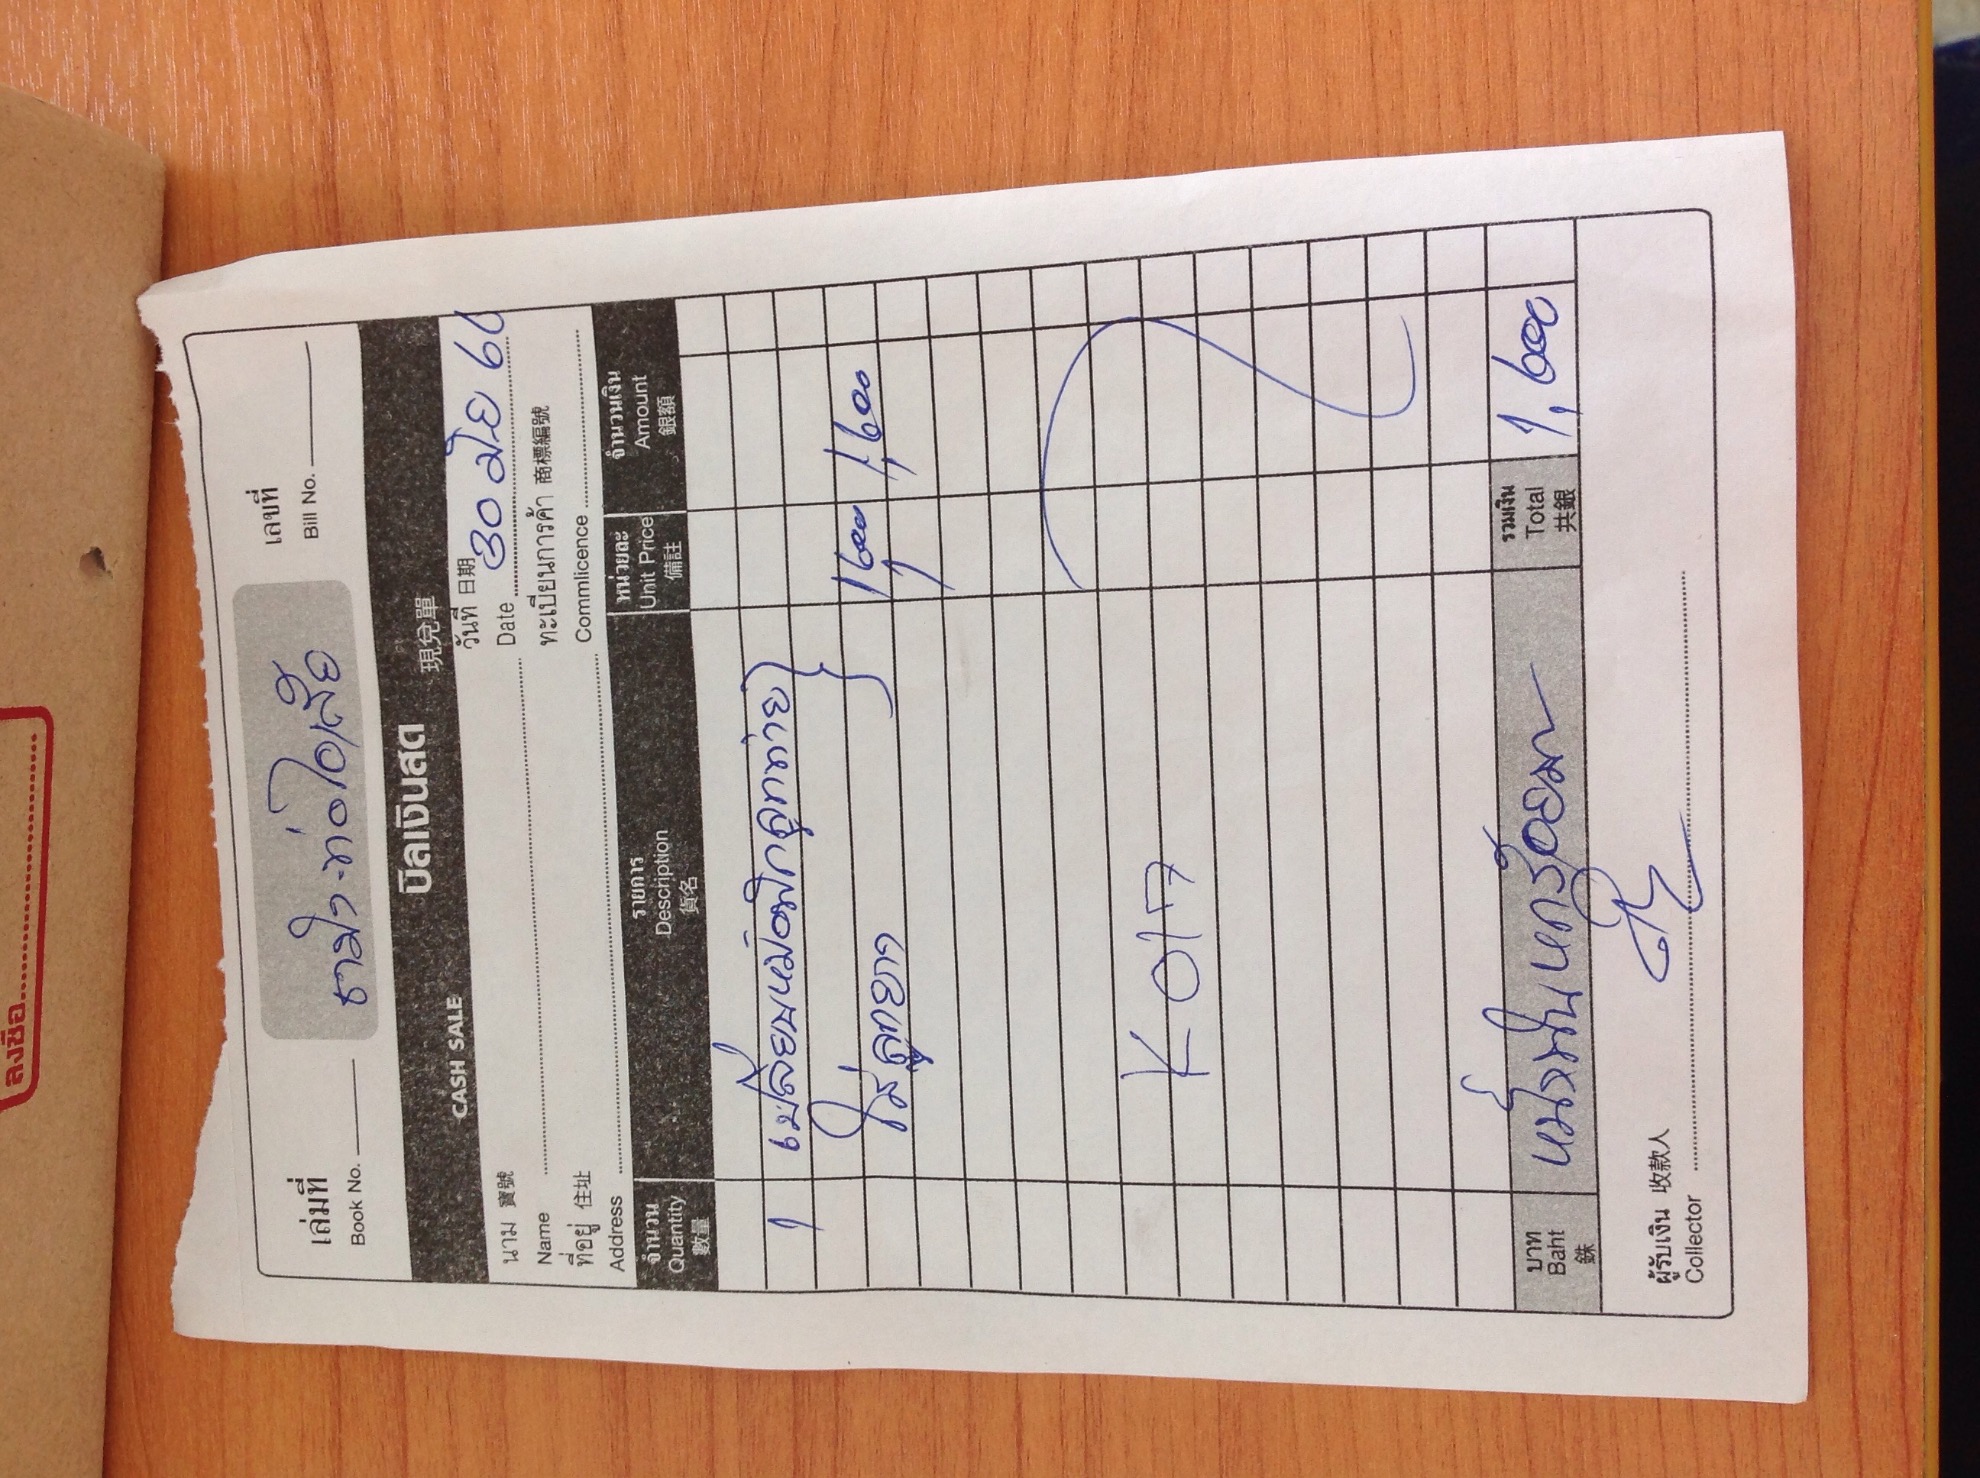 ลงชื่อ
เล่มที่
Book No.
ธามใจ ท่อไอเสีย
เลขที่
Bill No.
บิลเงินสด
CASH SALE 現兌單
นาม 寶號
Name
วันที่ 日期
Date 30 มิย 60
ที่อยู่ 住址
Address
ทะเบียนการค้า 商標編號
Commlicence
จำนวน รายการ หน่วยละ จำนวนเงิน
Quantity Description Unit Price Amount
數量 貨名 備註 銀額
1 เปลี่ยนหม้อพักลูกท้าย
ใส่ลูกยาว 1,600 1,600
K 017
บาท
Baht
銖
หนึ่งพันหกร้อยบาท
รวมเงิน
Total
共銀
1,600
ผู้รับเงิน 收款人
Collector